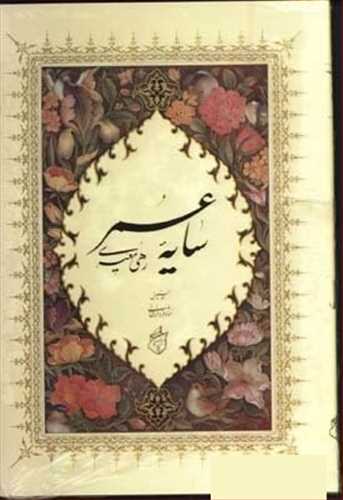 سایهٔ عمر
رهی معیری